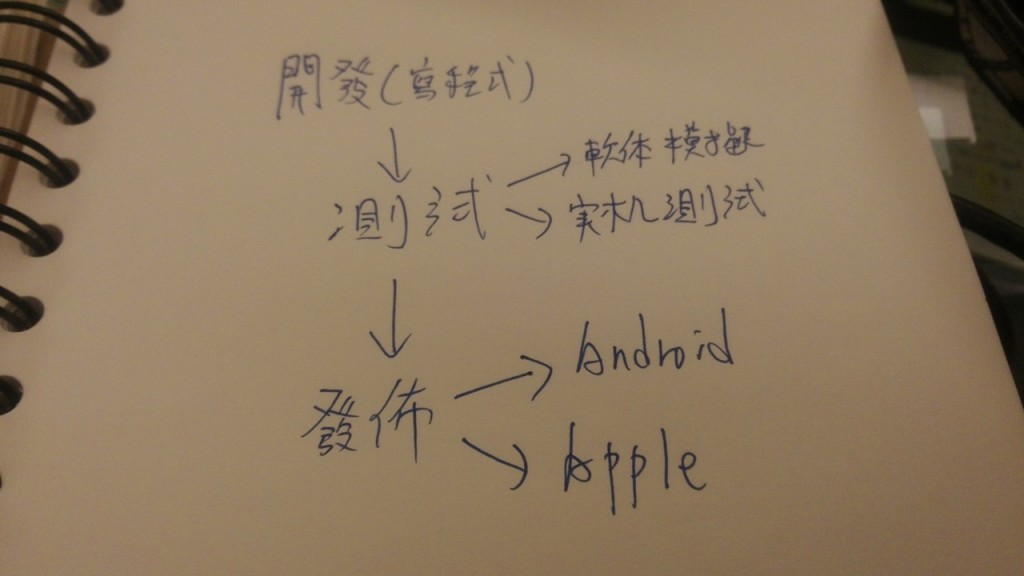 開發(寫程式)
軟体模擬
測試
実机測試
Android
發佈
Apple